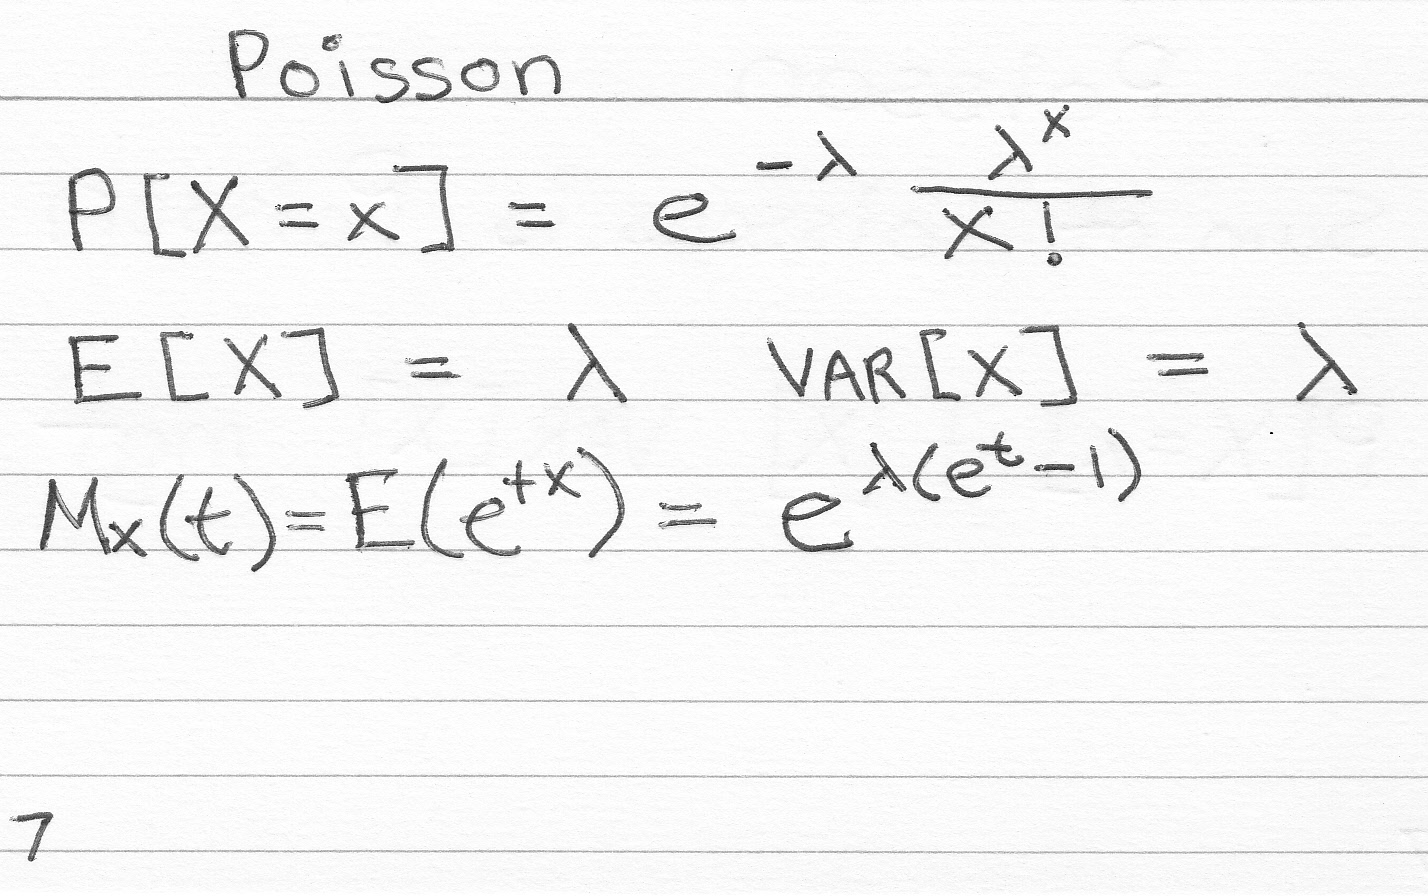 Poisson
P[X=x] = e^{-λ} \frac{λ^x}{x!}
E[X] = λ VAR[X] = λ
M_X(t)=E(e^{tx}) = e^{λ(e^t-1)}
7